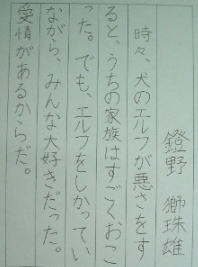 鐙野 獅珠雄
時々、犬のエルフが悪さをす
ると、うちの家族はすごくおこ
った。でも、エルフをしかってい
ながら、みんな大好きだった。
愛情があるからだ。